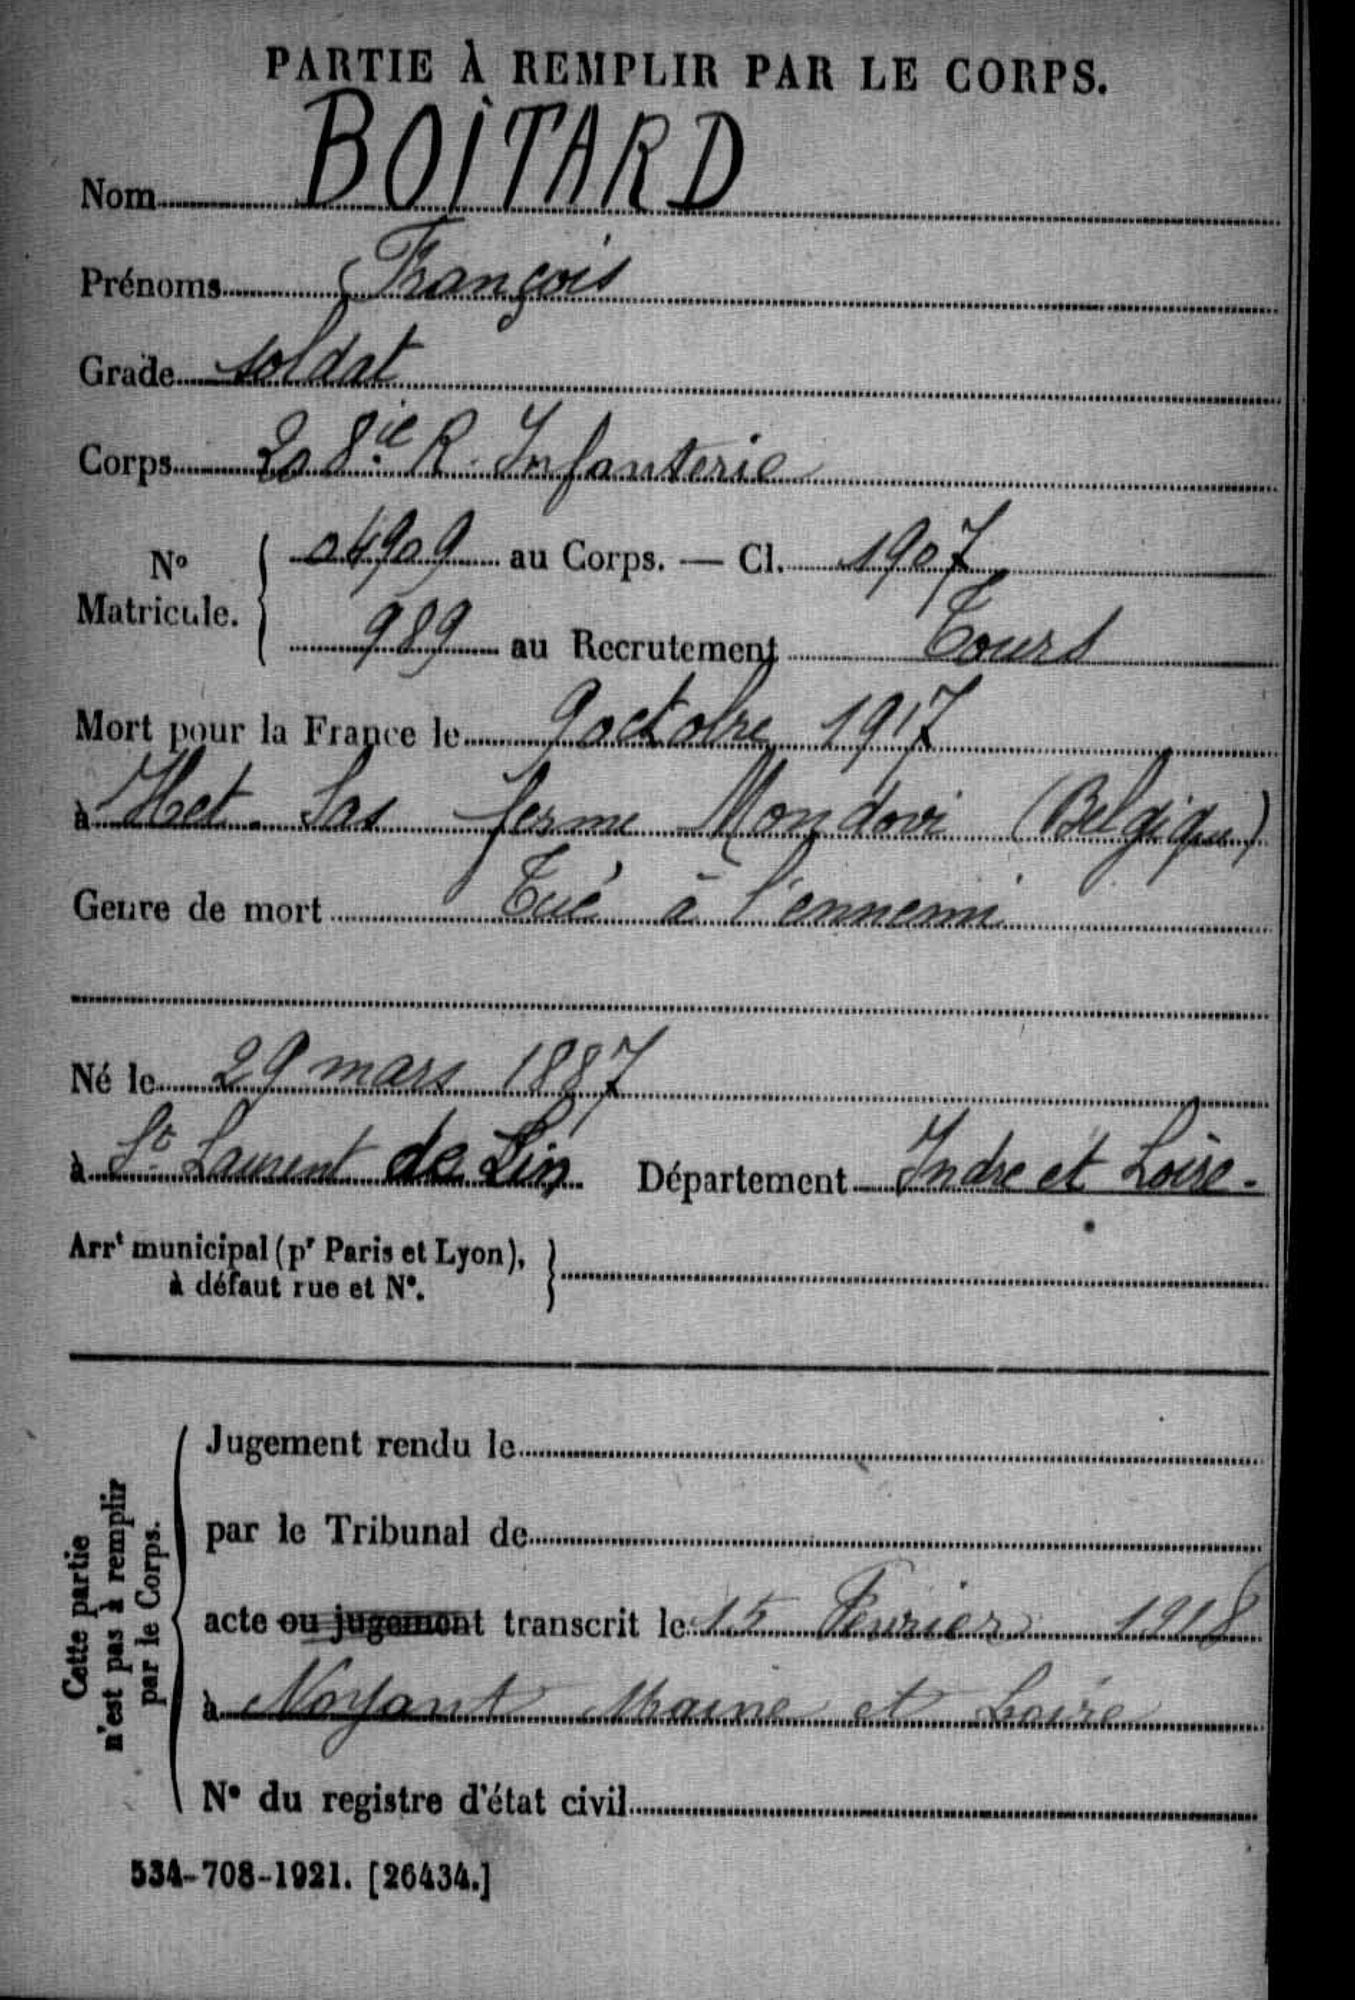 PARTIE À REMPLIR PAR LE CORPS.
Nom BOITARD
Prénoms François
Grade soldat
Corps 208ie R. Infanterie
No Matricule. 04909 au Corps. — Cl. 1907
989 au Recrutement Tours
Mort pour la France le 9 octobre 1917
à Het Sas ferme Mondovi (Belgique)
Genre de mort Tué à l'ennemi
Né le 29 mars 1887
à St Laurent de Lin Département Indre et Loire.
Arrt municipal (pr Paris et Lyon),
à défaut rue et No.
Cette partie
n'est pas à remplir
par le Corps.
Jugement rendu le
par le Tribunal de
acte ou jugement transcrit le 15 Février 1918
à Noyant Maine et Loire
No du registre d'état civil
534-708-1921. [26434.]